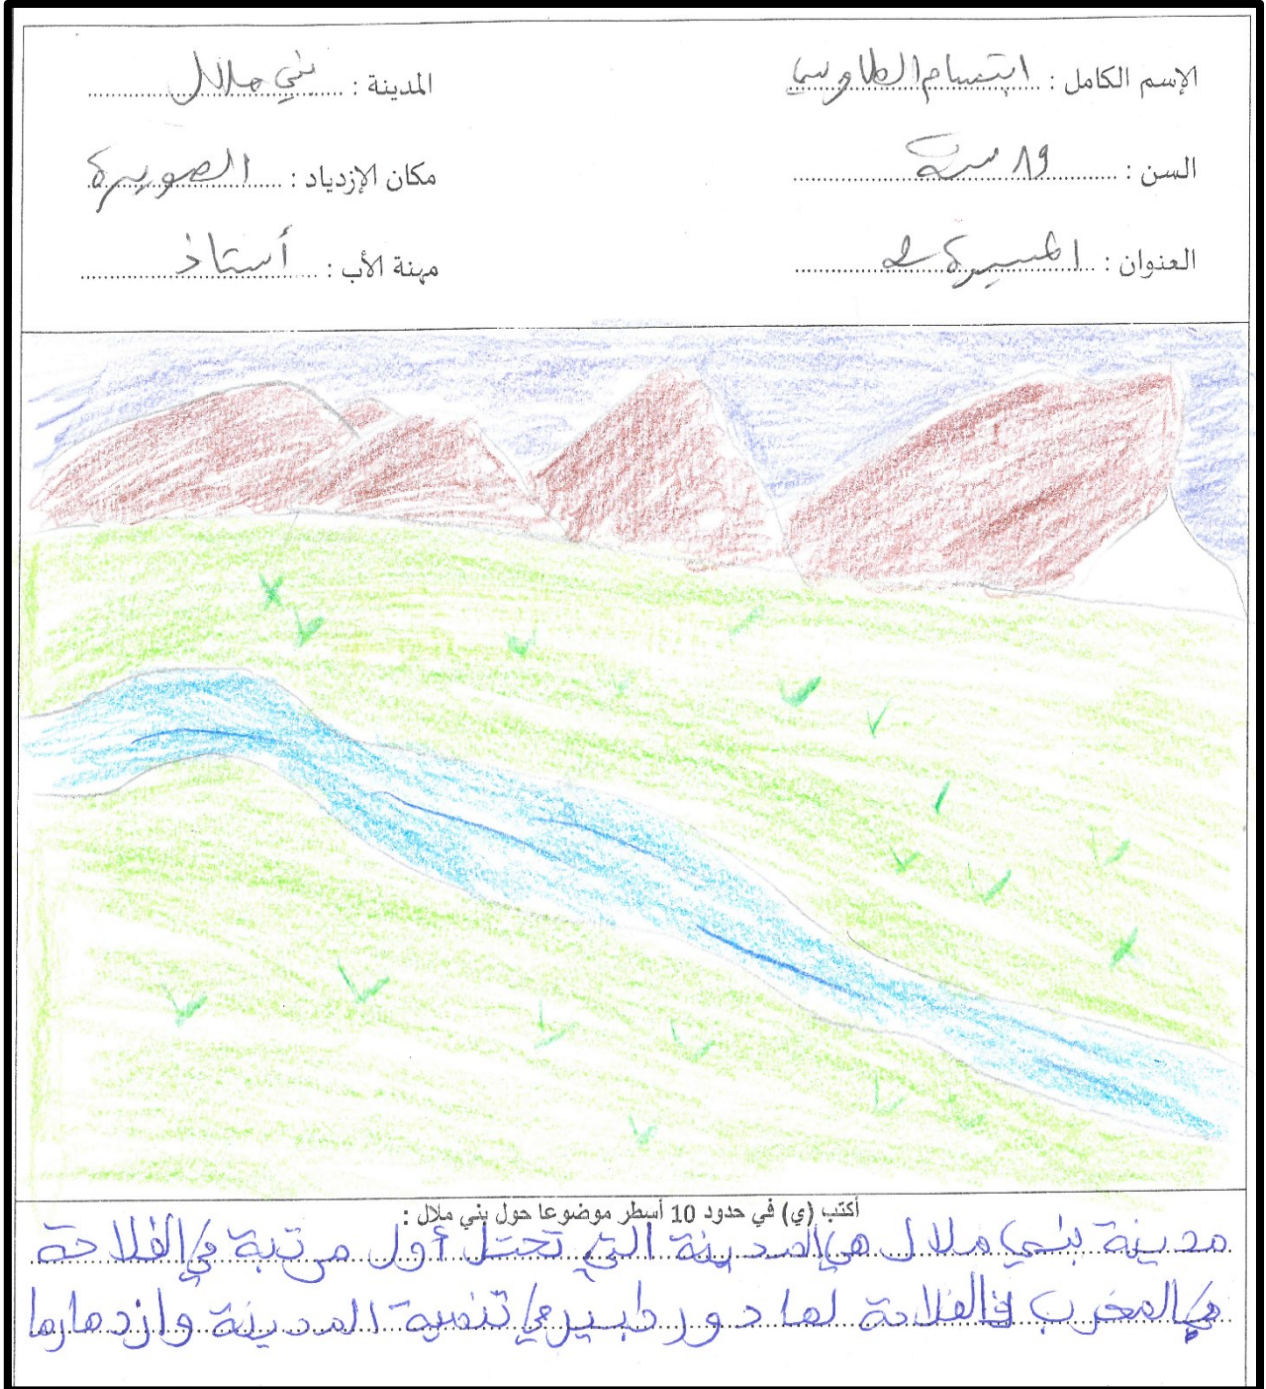 الإسم الكامل : ابتسام الطاوسي المدينة : بني ملال
السن : 19 سنة مكان الإزدياد : الصويرة
العنوان : المسيرة 2 مهنة الأب : أستاذ
أكتب (ي) في حدود 10 أسطر موضوعا حول بني ملال :
مدينة بني ملال هي المدينة التي تحتل أول مرتبة في الفلاحة
في المغرب فالفلاحة لها دور كبير في تنمية المدينة وازدهارها